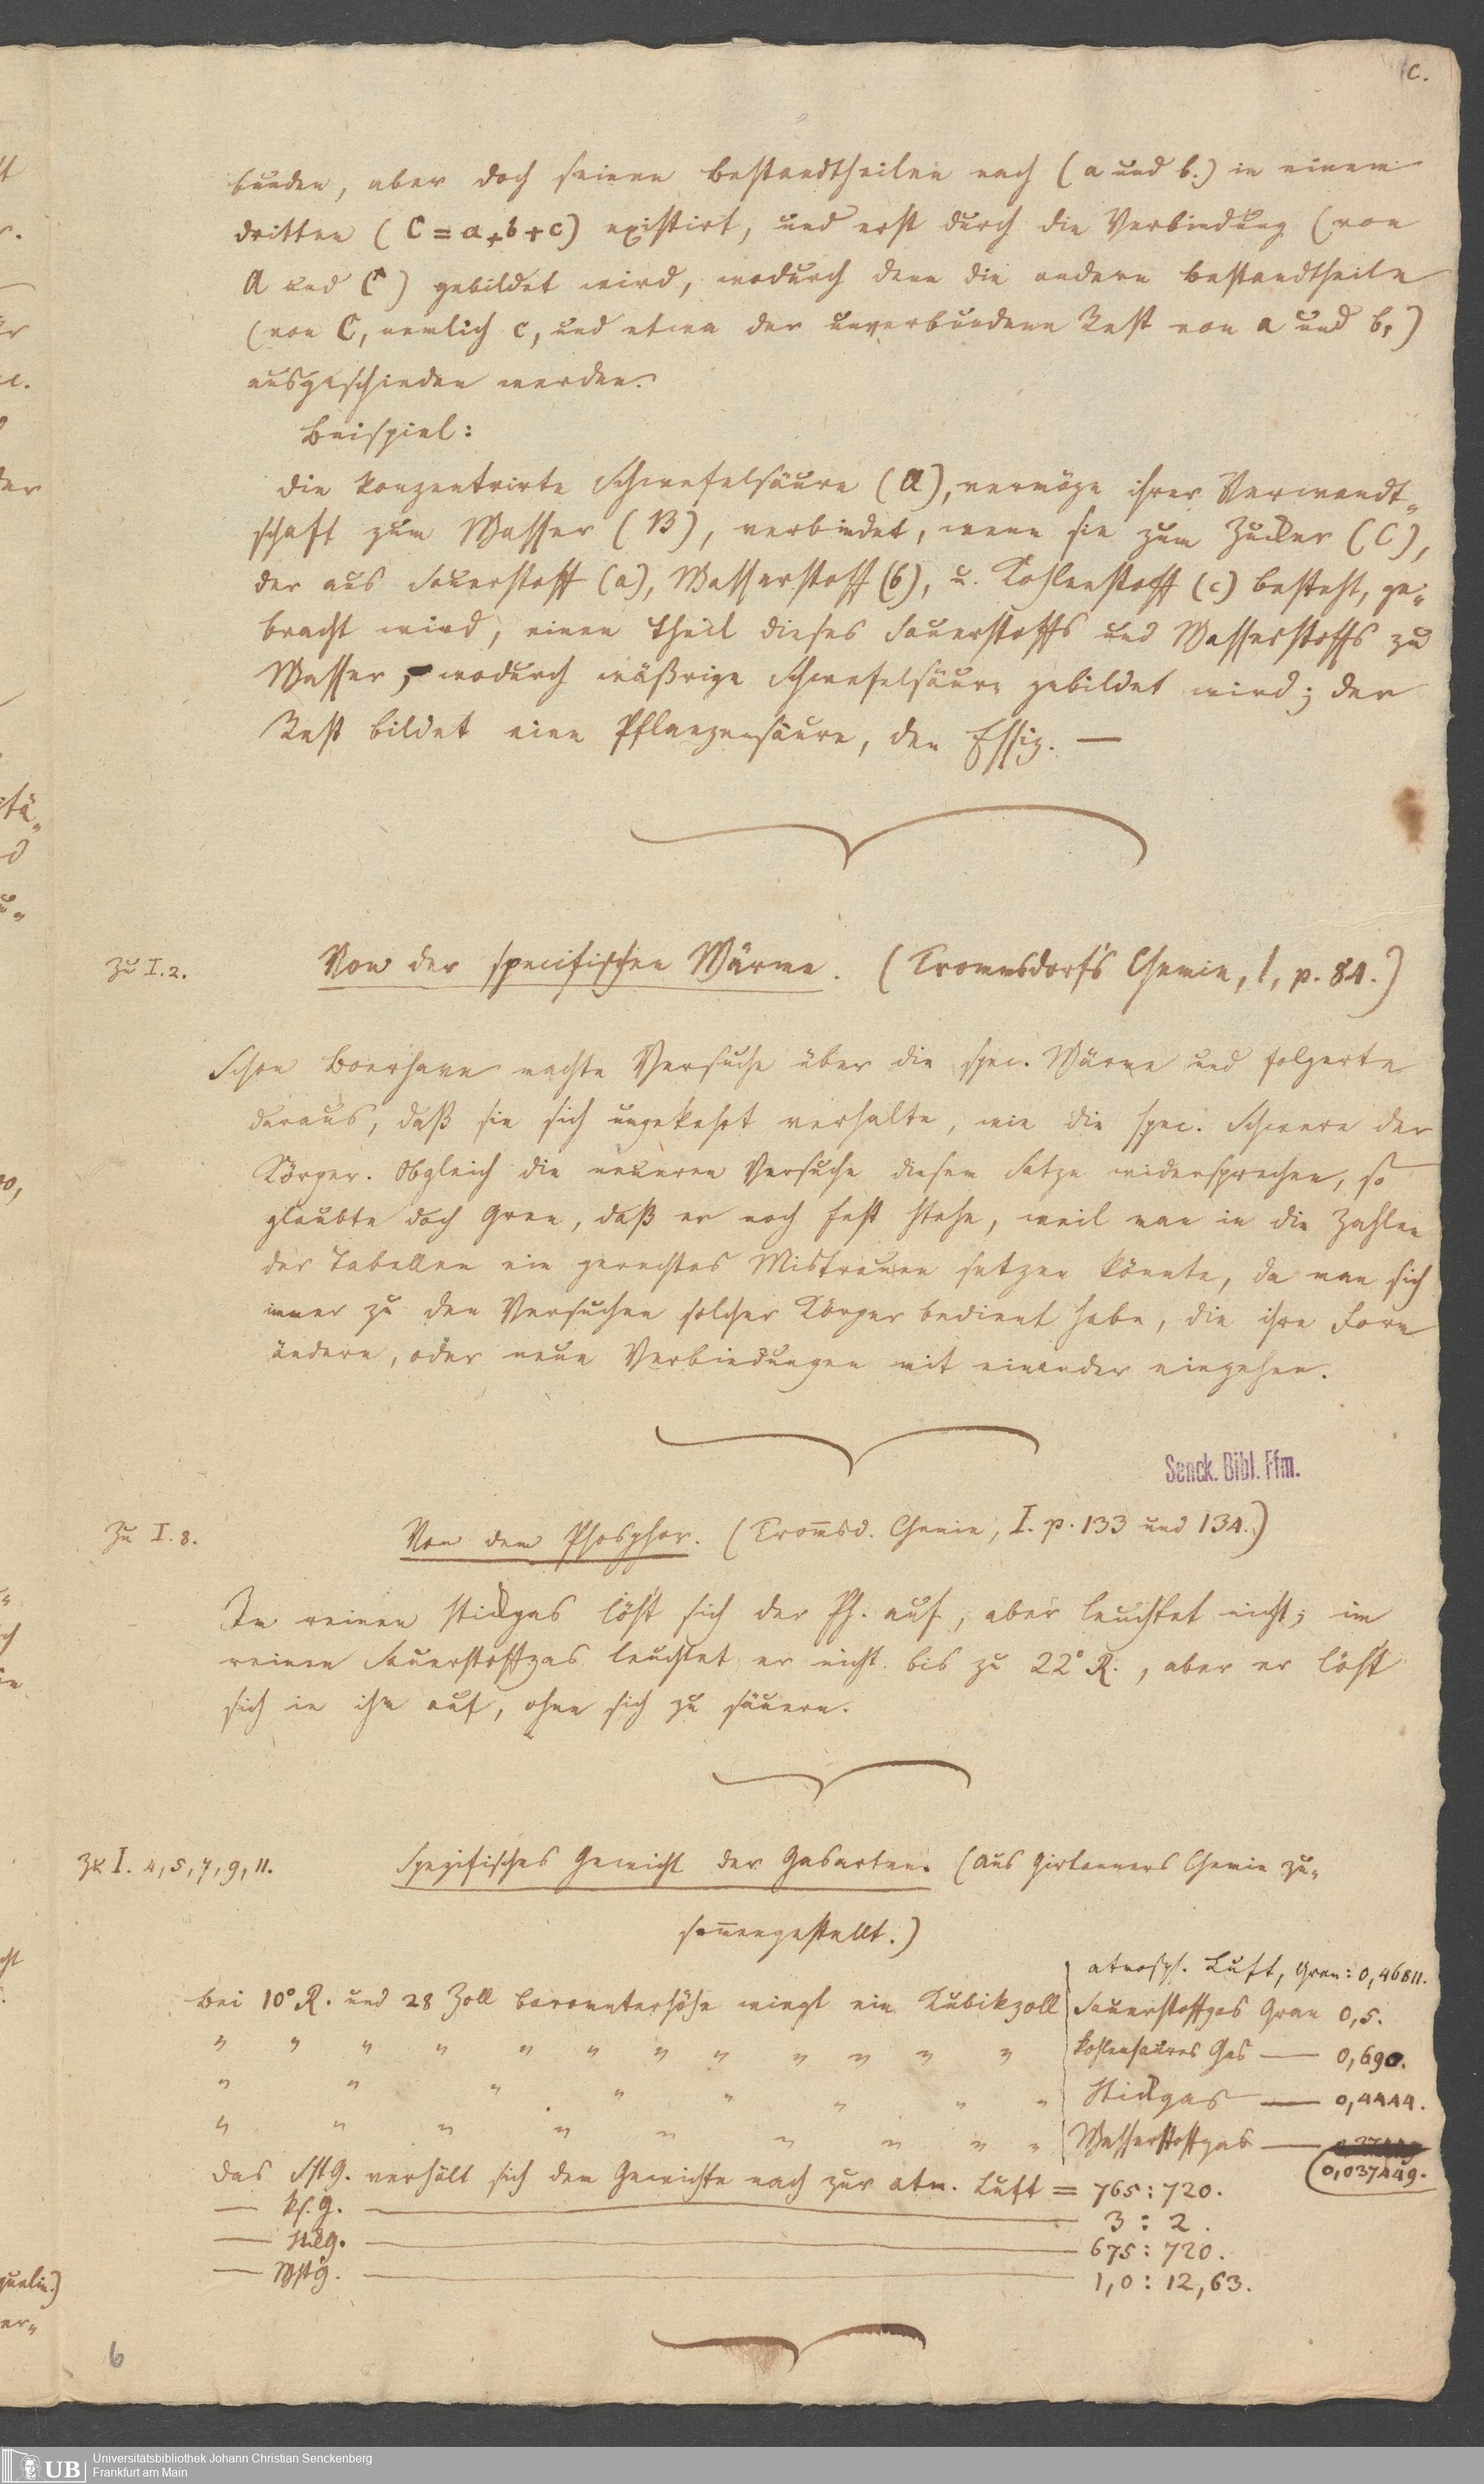 c.
bunden, aber doch seinen Bestandtheilen nach (a und b.) in einem
dritten (C = a + b + c) existirt, und erst durch die Verbindung (von
A und C) gebildet wird, wodurch denn die andern Bestandtheile
(von C, nemlich c, und etwa der unverbundene Rest von a und b,)
ausgeschieden werden.
Beispiel:
die konzentrirte Schwefelsäure (A), vermöge ihrer Verwandt„
schaft zum Wasser (B), verbindet, wenn sie zum Zucker (C),
der aus Sauerstoff (a), Wasserstoff (b), u. Kohlenstoff (c) besteht, ge„
bracht wird, einen Theil dieses Sauerstoffs und Wasserstoffs zu
Wasser, wodurch wäßrige Schwefelsäure gebildet wird; der
Rest bildet eine Pflanzensäure, den Essig. —
Zu I. 2.
Von der specifischen Wärme. (Trommsdorfs Chemie, I, p. 84.)
Schon Boerhave machte Versuche über die spec. Wärme und folgerte
daraus, daß sie sich umgekehrt verhalte, wie die spec. Schwere der
Körper. Obgleich die neueren Versuche diesem Satze widersprechen, so
glaubte doch Gren, daß er noch fest stehe, weil man in die Zahlen
der Tabellen ein gerechtes Mistrauen setzen könnte, da man sich
immer zu den Versuchen solcher Körper bedient habe, die ihre Form
ändern, oder neue Verbindungen mit einander eingehen.
Senck. Bibl. Ffm.
Zu I. 8.
Von dem Phosphor. (Trom̅sd. Chemie, I. p. 133 und 134.)
Im reinen Stickgas löst sich der Ph. auf, aber leuchtet nicht; im
reinen Sauerstoffgas leuchtet er nicht bis zu 22° R., aber er löst
sich in ihm auf, ohne sich zu säuern.
Zu I. 4, 5, 7, 9, 11.
Spezifisches Gewicht der Gasarten. (Aus Girtanners Chemie zu„
sam̅engestellt.)
atmosph. Luft, Gran: 0,46811.
Bei 10° R. und 28 Zoll Barometerhöhe wiegt ein Kubikzoll Sauerstoffgas Gran 0,5.
„ „ „ „ „ „ „ „ „ „ „ „ kohlensaures Gas — 0,690.
„ „ „ „ „ „ „ „ Stickgas — 0,4444.
„ „ „ „ „ „ „ „ „ Wasserstoffgas —
0,037449.
Das SstG. verhält sich dem Gewichte nach zur atm. Luft = 765 : 720.
— ks. G. — 3 : 2.
— StkG. — 675 : 720.
— WstG. — 1,0 : 12,63.
6
UB Universitätsbibliothek Johann Christian Senckenberg
Frankfurt am Main